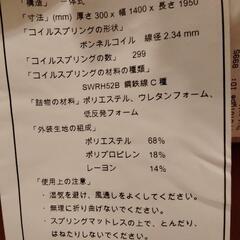 「構造」 一体式
「寸法」(mm) 厚さ300 x 幅1400 x 長さ1950
「コイルスプリングの形状」
ボンネルコイル 線径2.34 mm
「コイルスプリングの数」 299
「コイルスプリングの材料の種類」
SWRH52B 鋼鉄線C種
「詰物の材料」ポリエステル、ウレタンフォーム、
低反発フォーム
「外装生地の組成」
ポリエステル 68%
ポリプロピレン 18%
レーヨン 14%
「使用上の注意」
・湿気を避け、風通しをよくしてください。
・無理に折り曲げないでください。
・スプリングマットレスの上で、とんだり、
はねたりしないでください。